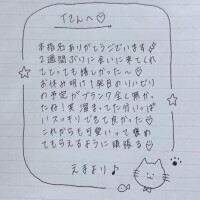 Tさんへ♡
本指名ありがとうございます
2週間ぶりに会いに来てくれ
てとっても嬉しかった〜♡
お休み明け1発目のリハビリ
の予定がブランク全く無かっ
たね!実 溜まってた分いっぱ
いスッキリできて良かった♡
これからも可愛いって褒め
てもらえるように頑張る♡
えまより♪